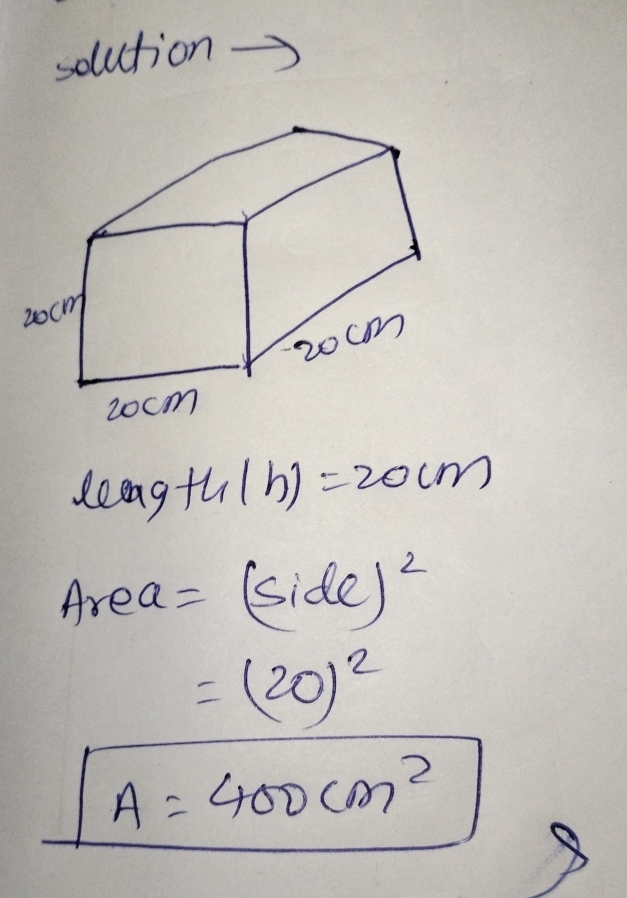 solution →
20cm
20cm
20cm
length(h) = 20cm
Area = (side)²
= (20)²
A = 400cm²